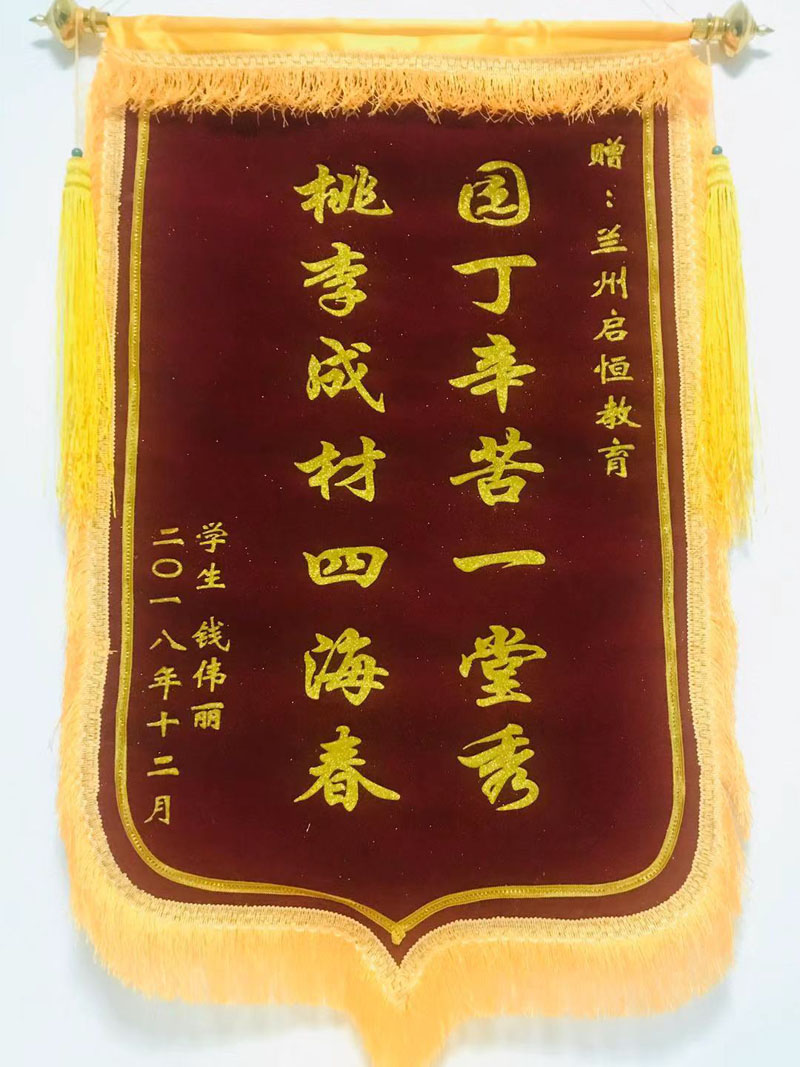 赠：兰州启恒教育
园丁辛苦一堂秀
桃李成材四海春
学生 钱伟丽
二〇一八年十二月